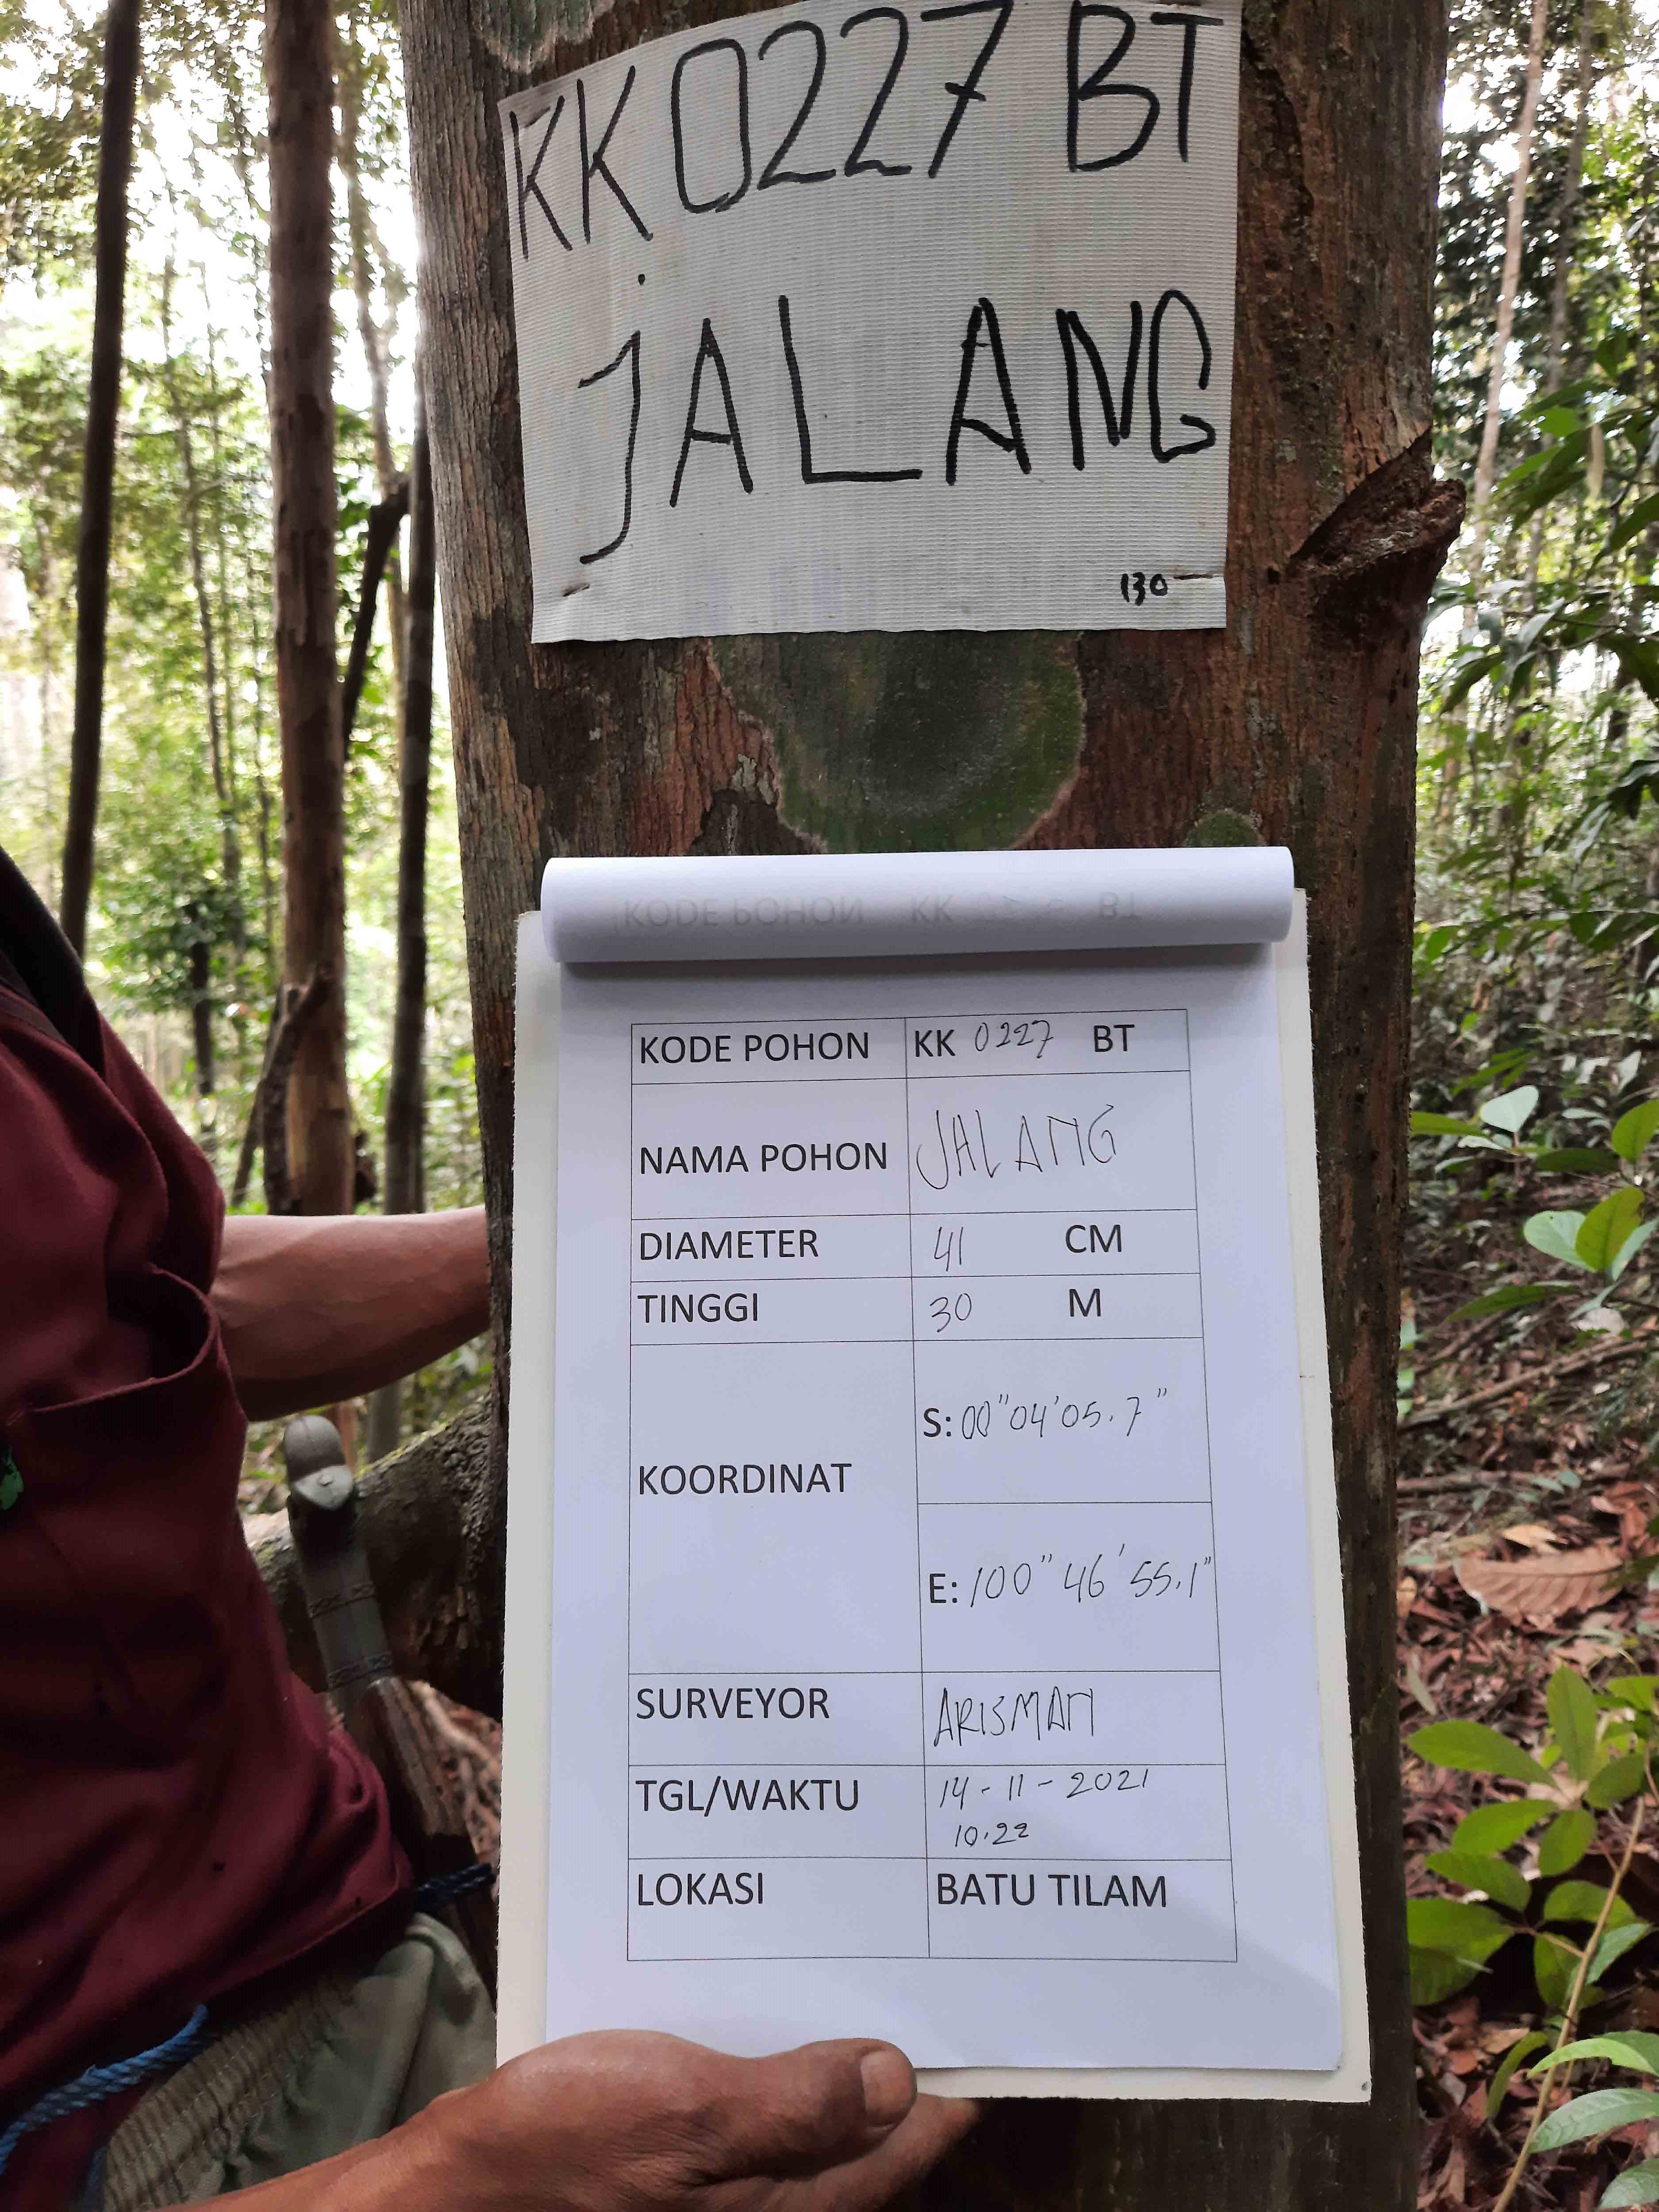 KK 0227 BT
JALANG
130
KODE POHON KK 0227 BT
NAMA POHON JALANG
DIAMETER 41 CM
TINGGI 30 M
KOORDINAT
S: 00"04'05.7"
E: 100"46'55.1"
SURVEYOR ARISMAN
TGL/WAKTU 14-11-2021
10.22
LOKASI BATU TILAM